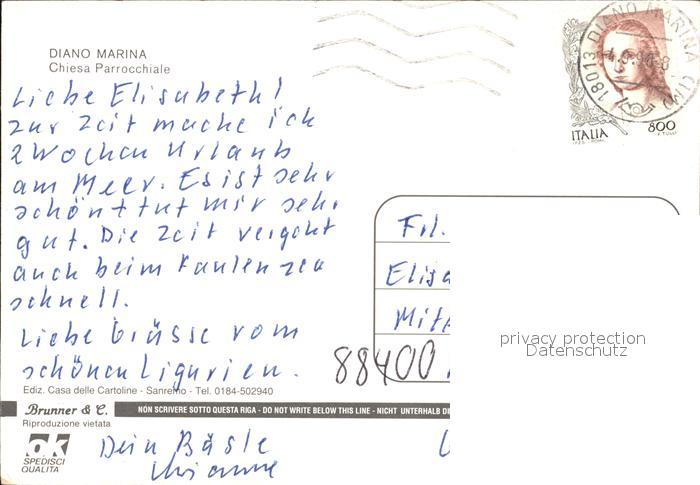 DIANO MARINA
Chiesa Parrocchiale
Liebe Elisabeth!
zur Zeit mache ich
2 Wochen Urlaub
am Meer. Es ist sehr
schön + tut mir sehr
gut. Die Zeit vergeht
auch beim Faulenzen
schnell.
Liebe Grüsse vom
schönen Ligurien.
Ediz. Casa delle Cartoline - Sanremo - Tel. 0184-502940
Brunner & C.
NON SCRIVERE SOTTO QUESTA RIGA - DO NOT WRITE BELOW THIS LINE - NICHT UNTERHALB DI
Riproduzione vietata
ok
SPEDISCI
QUALITÀ
Dein Bäsle
18013 DIANO MARINA (IM)
ITALIA 800
Frl.
Elisa
Mitt
88400
privacy protection
Datenschutz